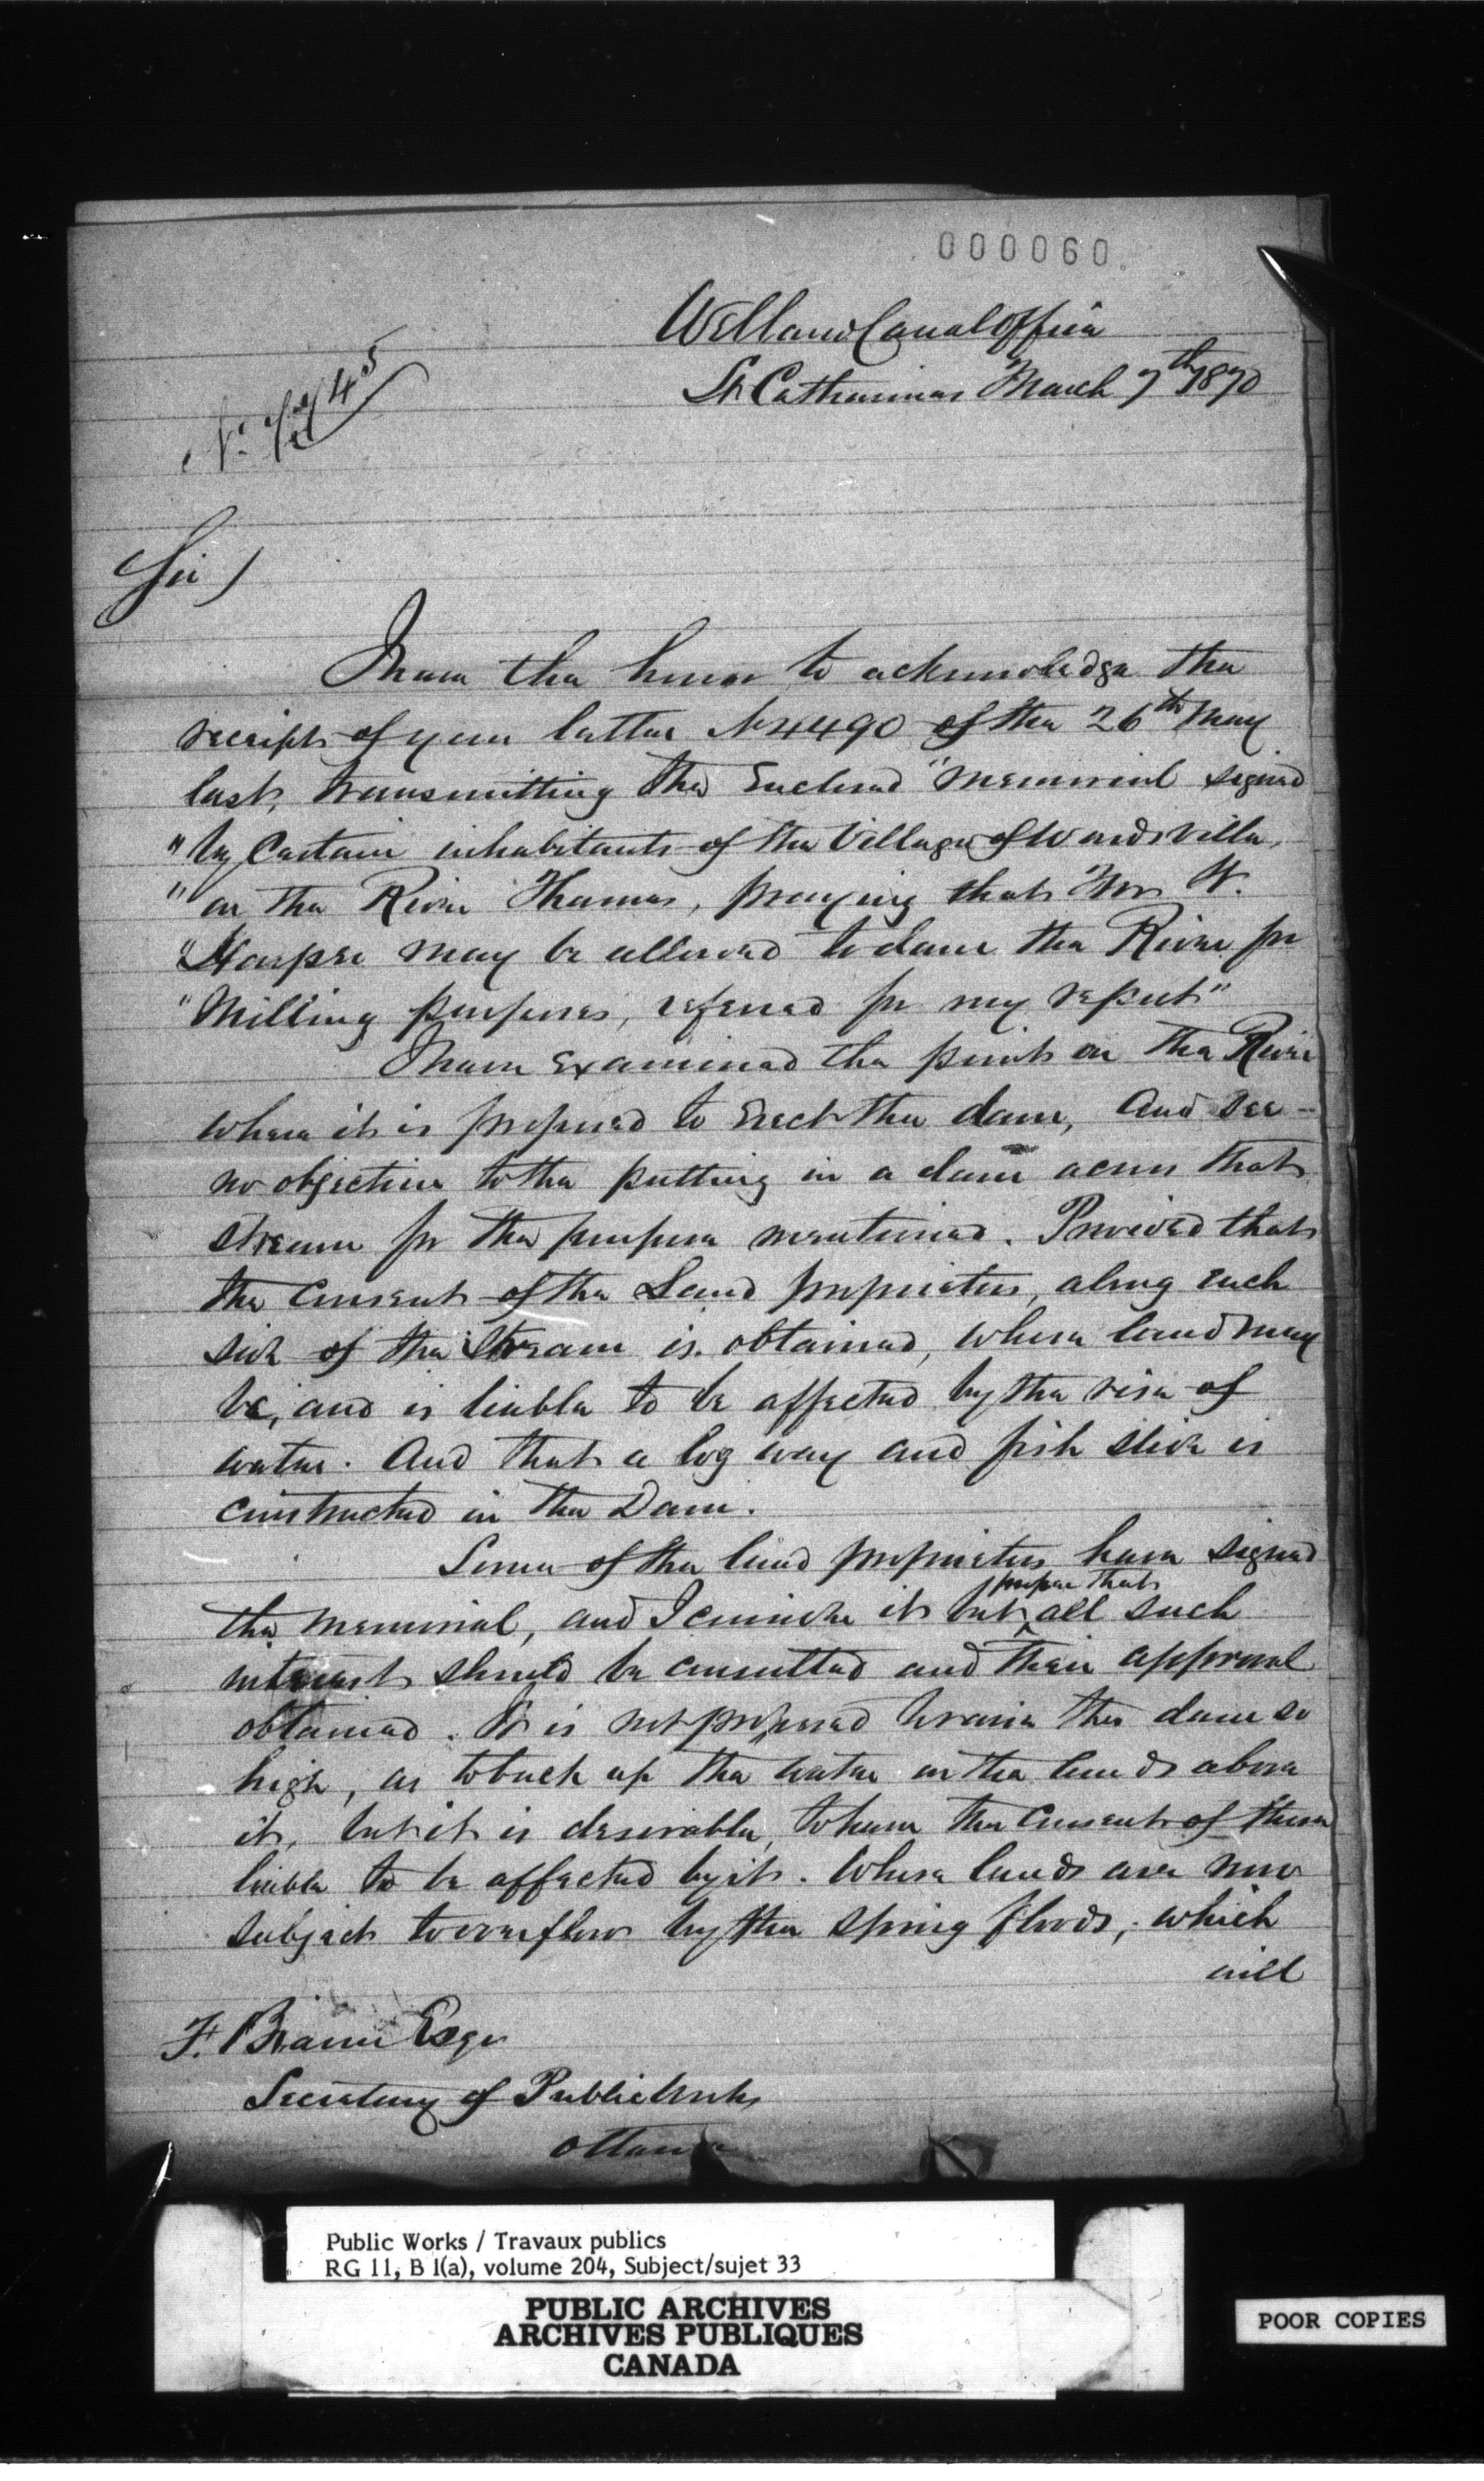 000060
Welland Canal Office
St Catharines March 7th 1870
Sir)
I have the honor to acknowledge the
receipt of your letter No 4490 of the 26th May
last, transmitting the Enclosed "Memorial signed
"by Certain inhabitants of the Village of Wardsville,
"on the River Thames, praying that Mr W.
"Harper may be allowed to dam the River for
"Milling purposes, referred for my report"
I have Examined the point on the River
where it is proposed to Erect the dam, And see
no objection to the putting in a dam across that
stream for the purpose mentioned. Provided that
the Consent of the Land proprietors, along each
side of the Stream is obtained, where land may
be, and is liable to be affected by the rise of
water. And that a log way and fish slide is
constructed in the Dam.
Some of the land proprietors have signed
the memorial, and I consider it but proper that all such
interest should be consulted and their approval
obtained. It is not proposed to raise the dam so
high, as to back up the water on the lands above
it, but it is desirable, to have the Consent of those
liable to be affected by it. Where lands are now
subject to overflow by the spring floods, which
will
F. Braun Esqr
Secretary of Public Works
Ottawa
Public Works / Travaux publics
RG 11, B 1(a), volume 204, Subject/sujet 33
PUBLIC ARCHIVES
ARCHIVES PUBLIQUES
CANADA
POOR COPIES